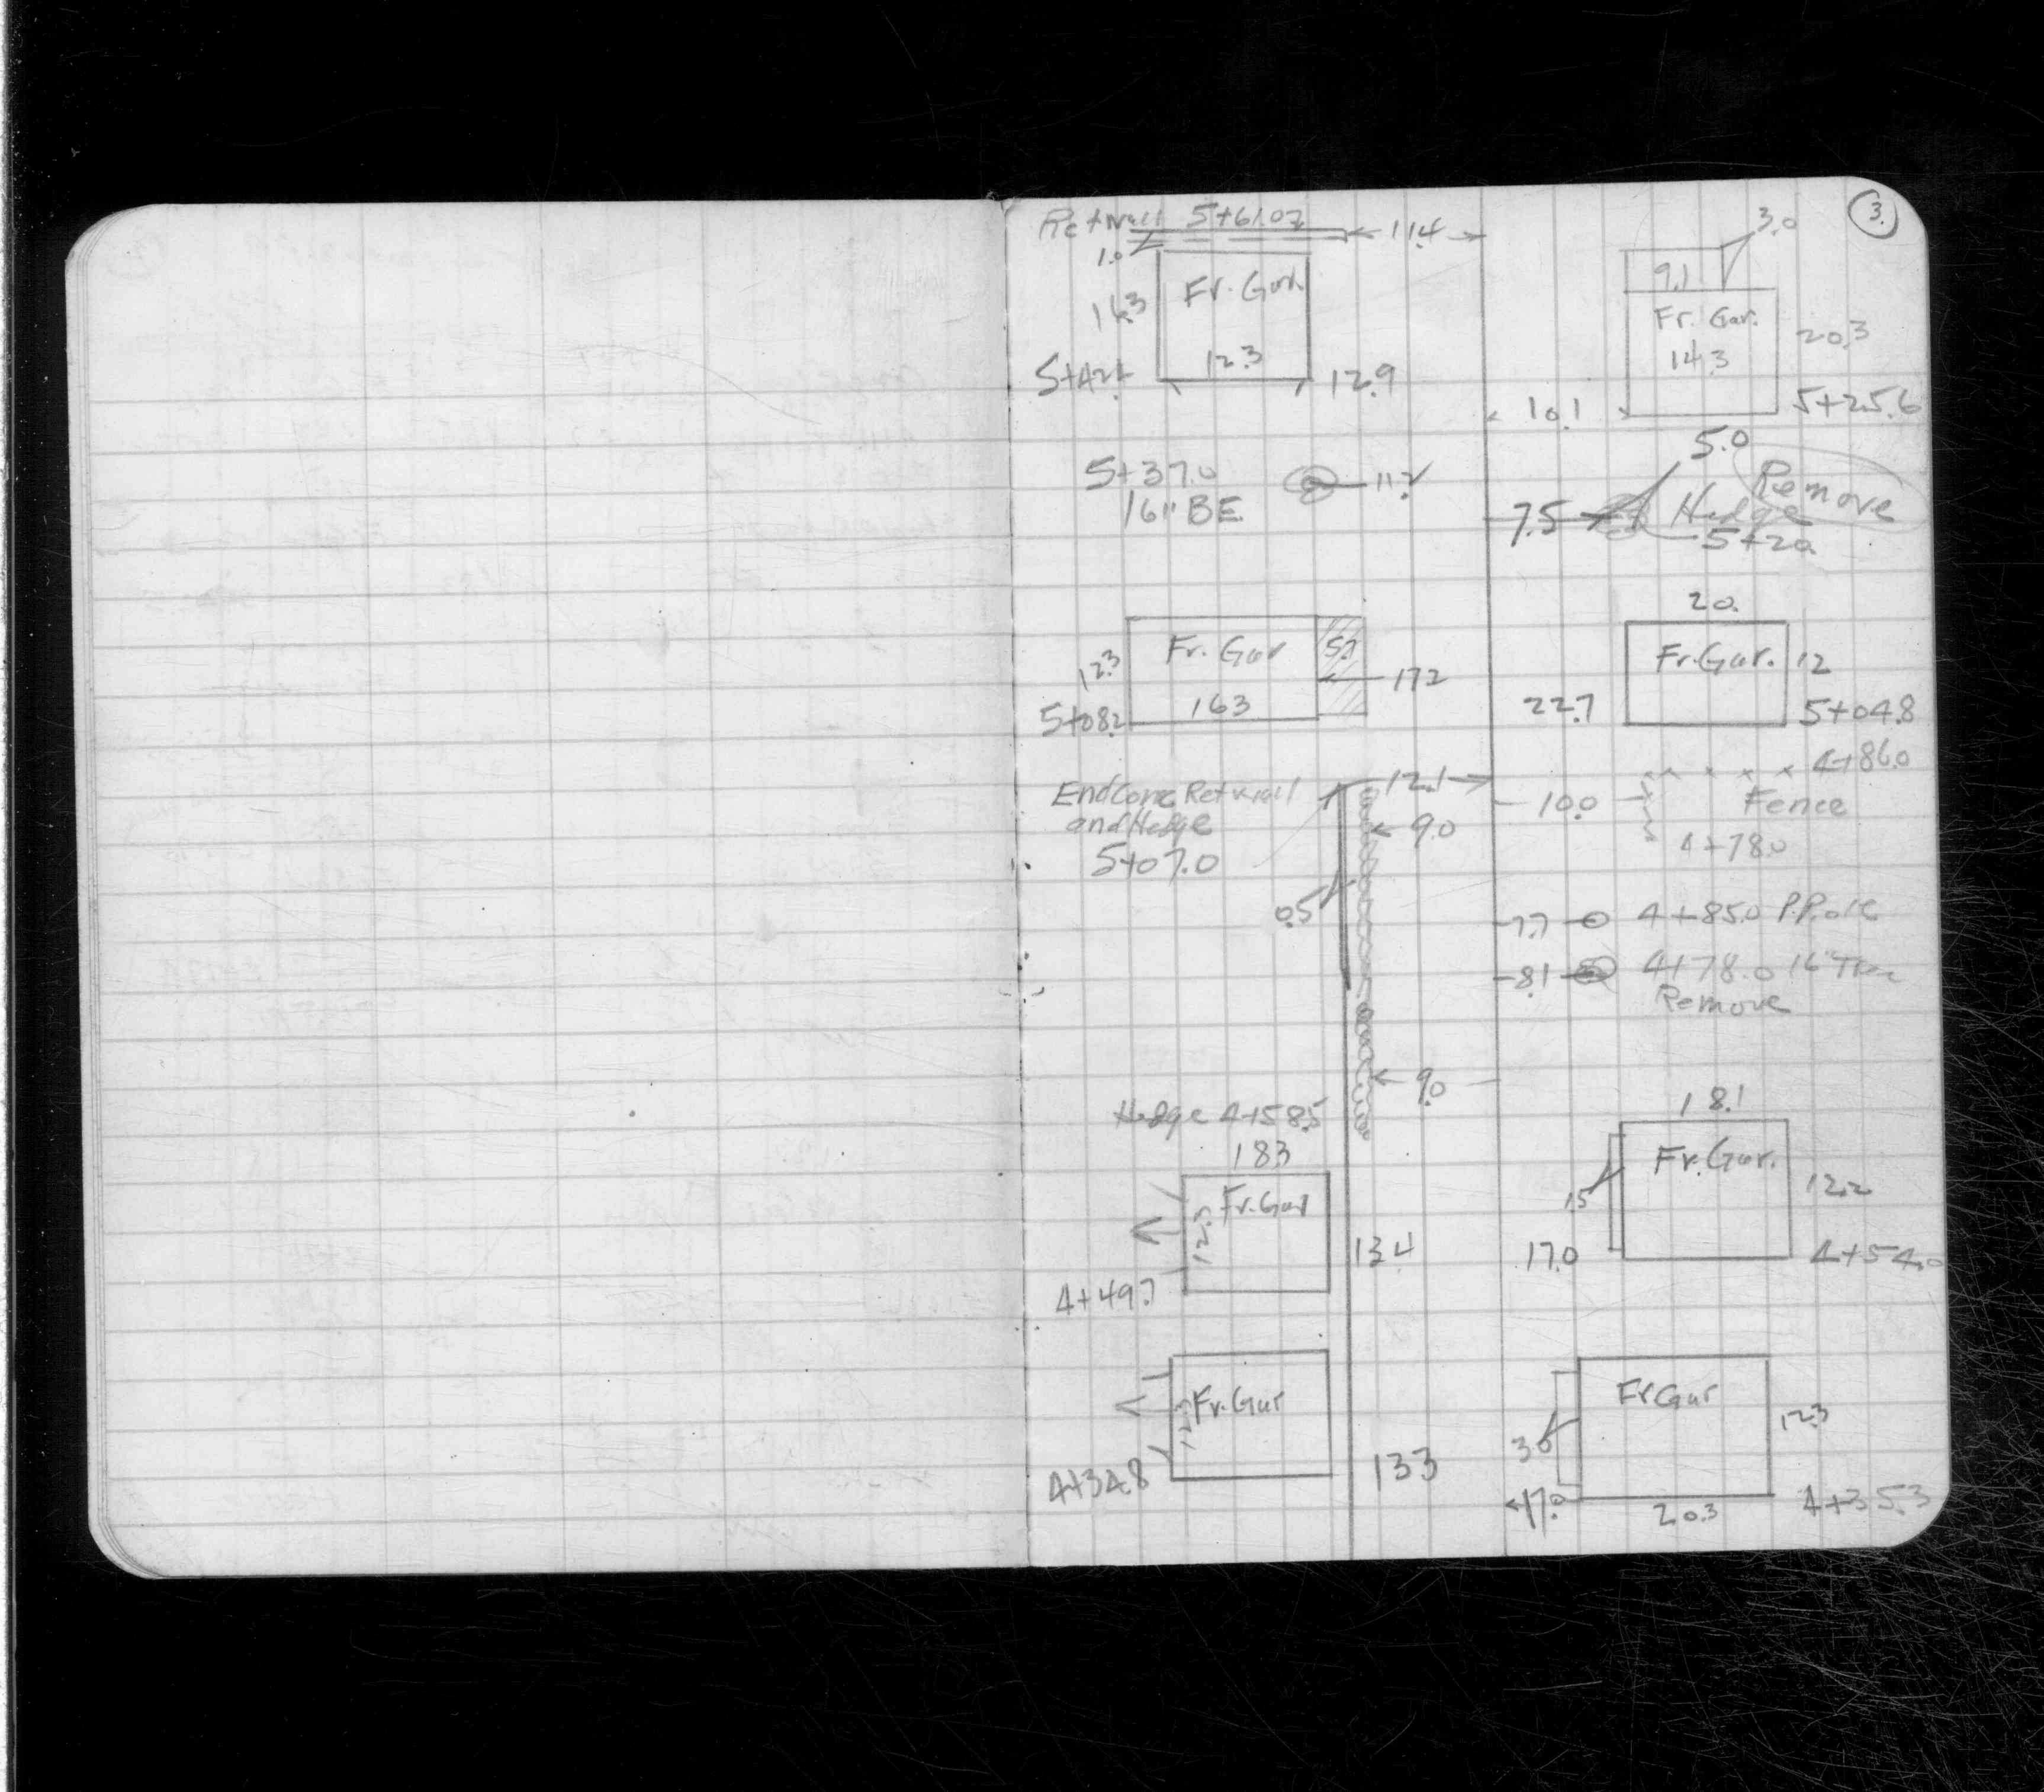 3.
Ret Wall 5+61.02
11.4
3.0
1.0
9.1
Fr. Gar.
16.3
Fr. Gar.
20.3
12.3
14.3
12.9
10.1
5+25.6
5.0
5+37.0
Remove
16" BE
7.5
Hedge
20.
Fr. Gar
5.7
Fr. Gar.
12
12.3
17.2
16.3
22.7
5+08.2
5+04.8
4+86.0
12.1
End Conc Ret Wall
10.0
Fence
and Hedge
9.0
4+78.0
5+07.0
0.5
7.7
4+85.0 P.Pole
8.1
4+78.0 16" Tree
Remove
9.0
Hedge 4+58.5
18.1
18.3
Fr. Gar.
Fr. Gar
12.2
12.3
1.5
13.4
17.0
4+54.0
4+49.7
Fr. Gar
Fr Gar
12.3
3.0
4+34.8
13.3
17.0
20.3
4+35.3